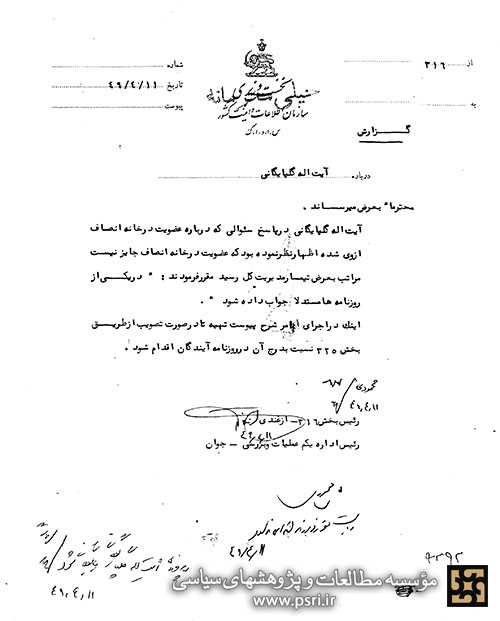 از ۳۱۶
به
نخست وزیری
سازمان اطلاعات و امنیت کشور
س.ا.و.ا.ک
شماره
تاریخ ۴۹/۴/۱۱
پیوست
گزارش
درباره آیت اله گلپایگانی
محترماً بعرض میرساند .
آیت اله گلپایگانی در پاسخ سئوالی که درباره عضویت در خانه انصاف
از وی شده اظهار نظر نموده بود که عضویت در خانه انصاف جایز نیست
مراتب بعرض تیمسار مدیریت کل رسید مقرر فرمودند : " در یکی از
روزنامه ها مستدلا جواب داده شود " .
اینک در اجرای امر شرح پیوست تهیه تا در صورت تصویب از طریق
بخش ۳۲۵ نسبت بدرج آن در روزنامه آیندگان اقدام شود .
رئیس بخش ۳۱۶ - ازغندی
رئیس اداره یکم عملیات و بررسی - جوان
مؤسسه مطالعات و پژوهشهای سیاسی
www.psri.ir